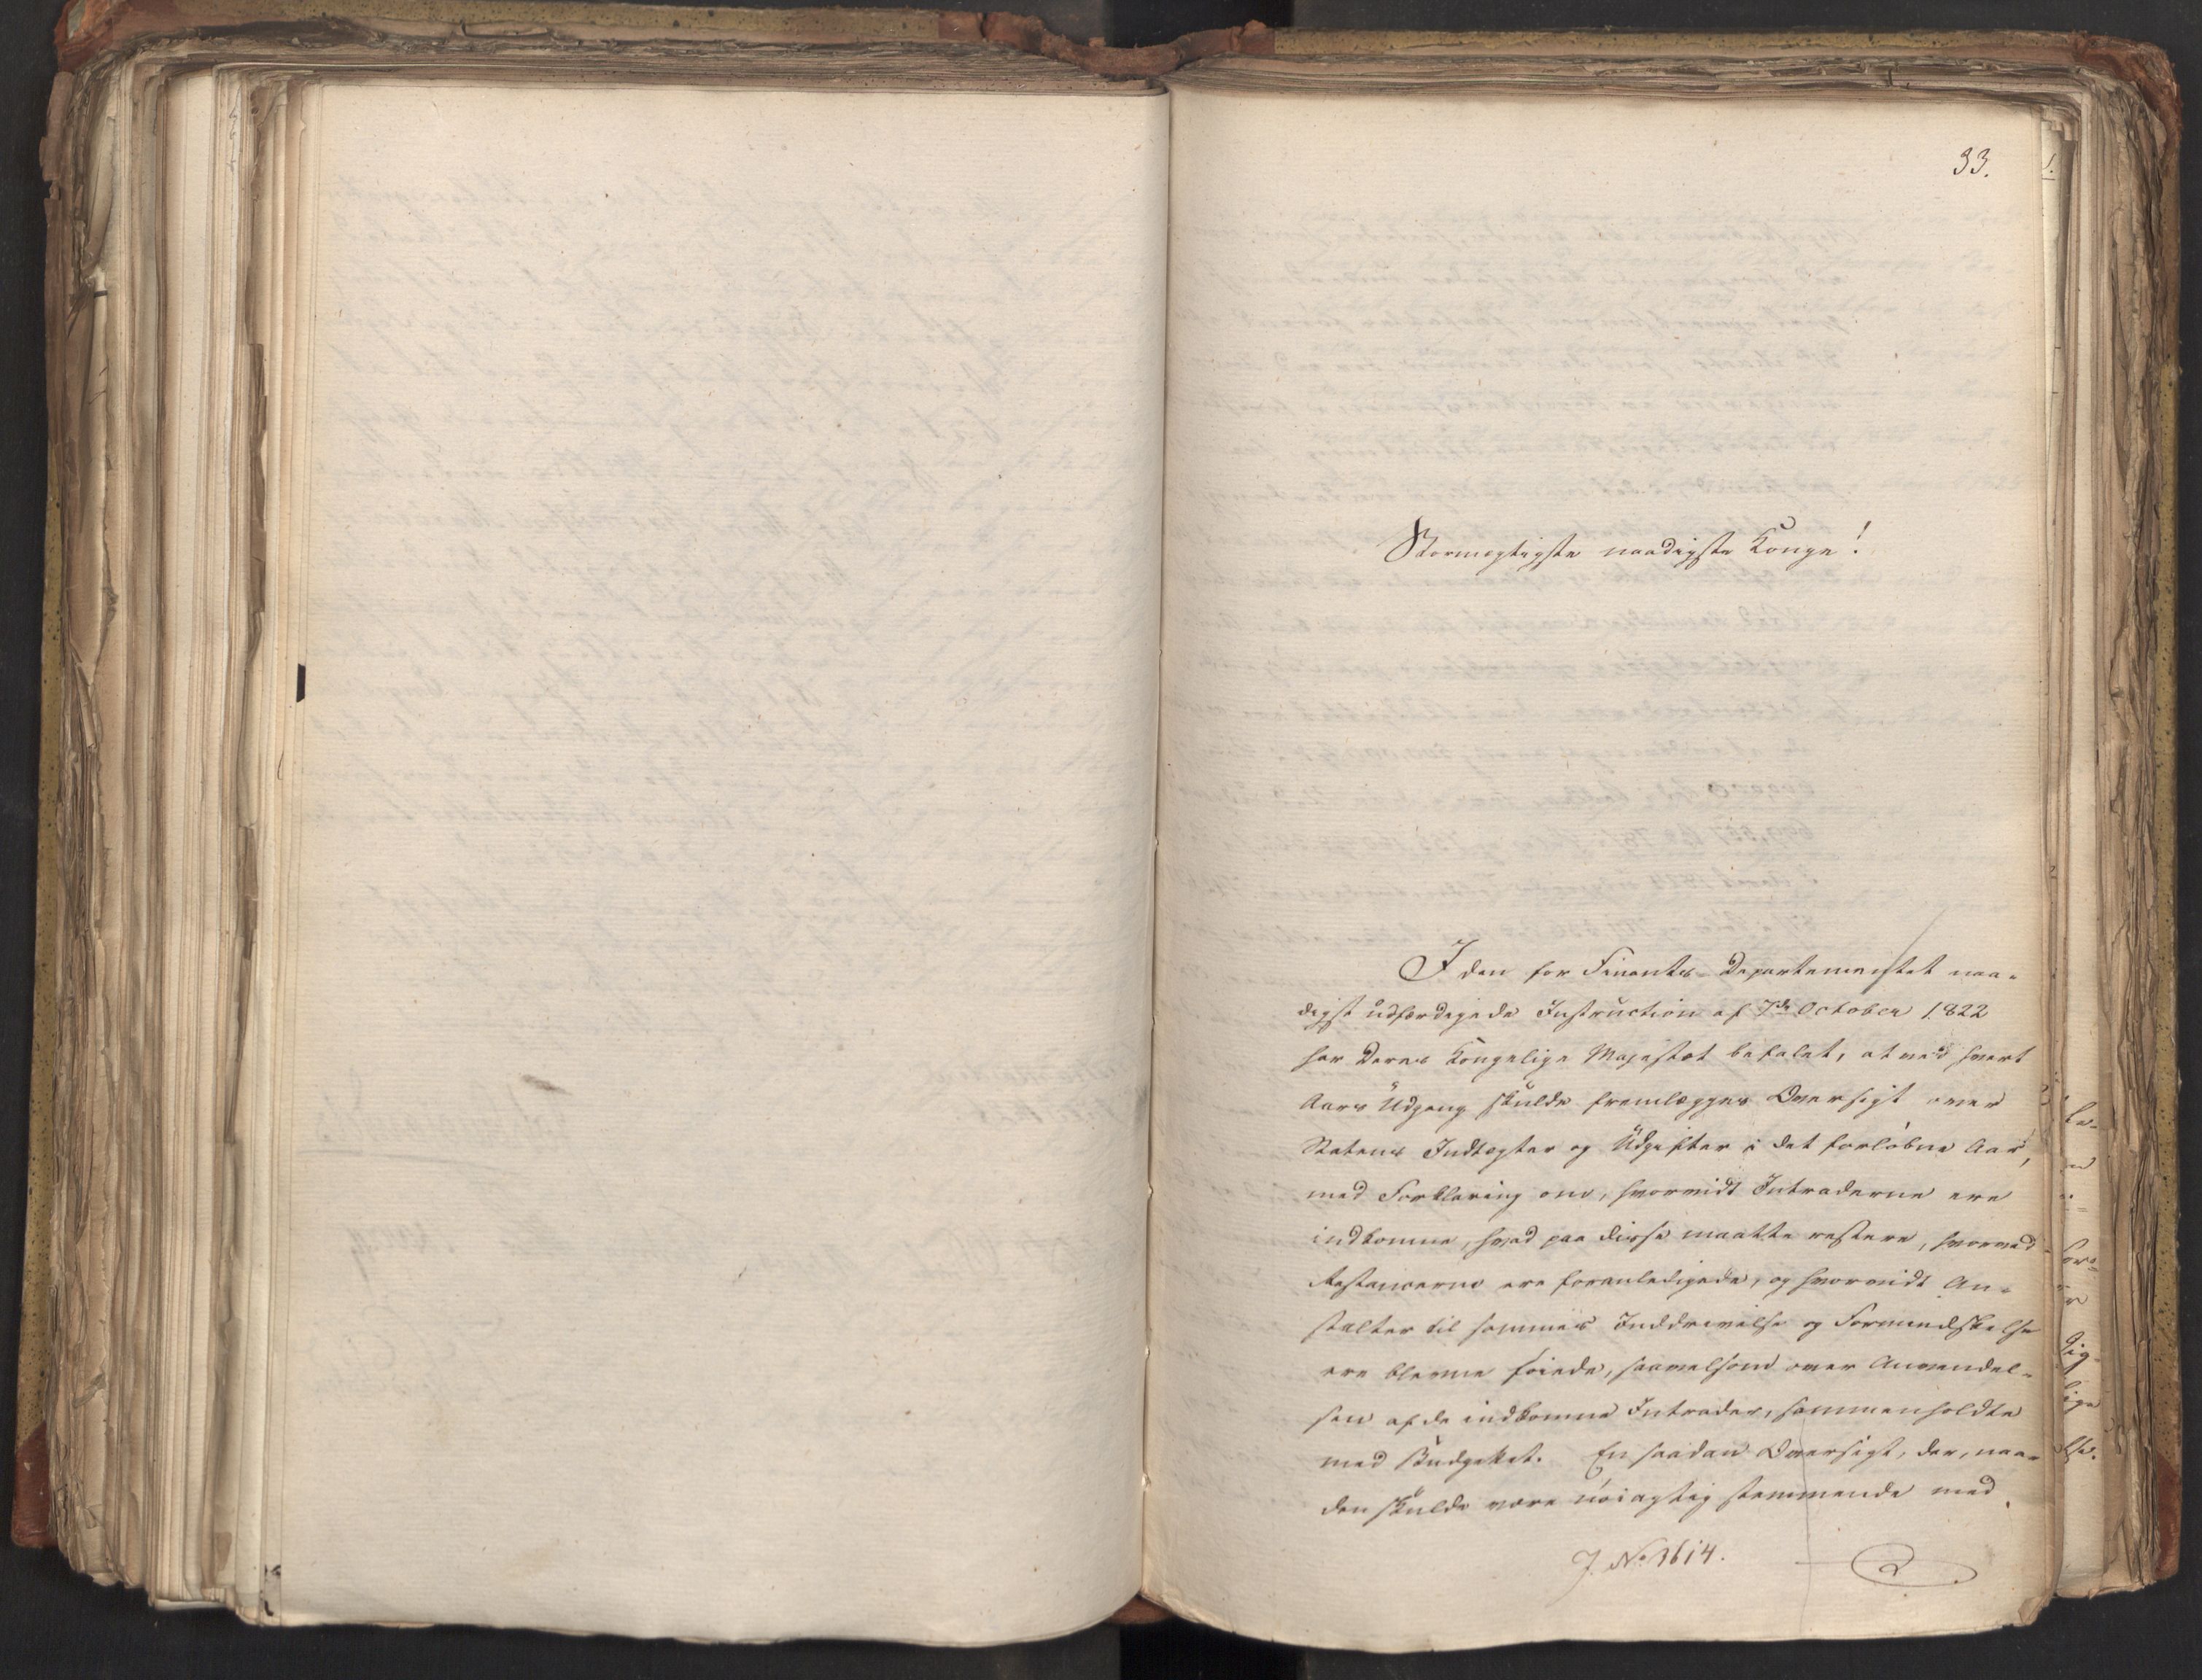 33.
Stormægtigste naadigste Konge!
I den for Finants-Departementet naa-
digst udfærdigede Instruction af 7de October 1822
har Deres Kongelige Majestæt befalet, at ved hvert
Aars Udgang skulde fremlægges Oversigt over
Statens Indtægter og Udgifter i det forløbne Aar,
med Forklaring om, hvorvidt Intraderne ere
indkomne, hvad paa disse maatte restere, hvorved
Restancerne ere foranledigede, og hvorvidt An-
stalter til sammes Inddrivelse og Formindskelse
ere blevne føiede, saavelsom over Anvendel-
sen af de indkomne Intrader, sammenholdte
med Budgettet. En saadan Oversigt, der, naar
den skulde være nöiagtig stemmende med
J. No 1614.